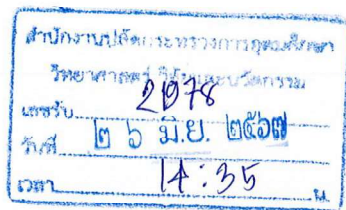 สำนักงานปลัดกระทรวงการอุดมศึกษา
วิทยาศาสตร์ วิจัยและนวัตกรรม
เลขรับ 21978
วันที่ ๒ ๖ มิ.ย. ๒๕๖๗
เวลา 14:35 น.